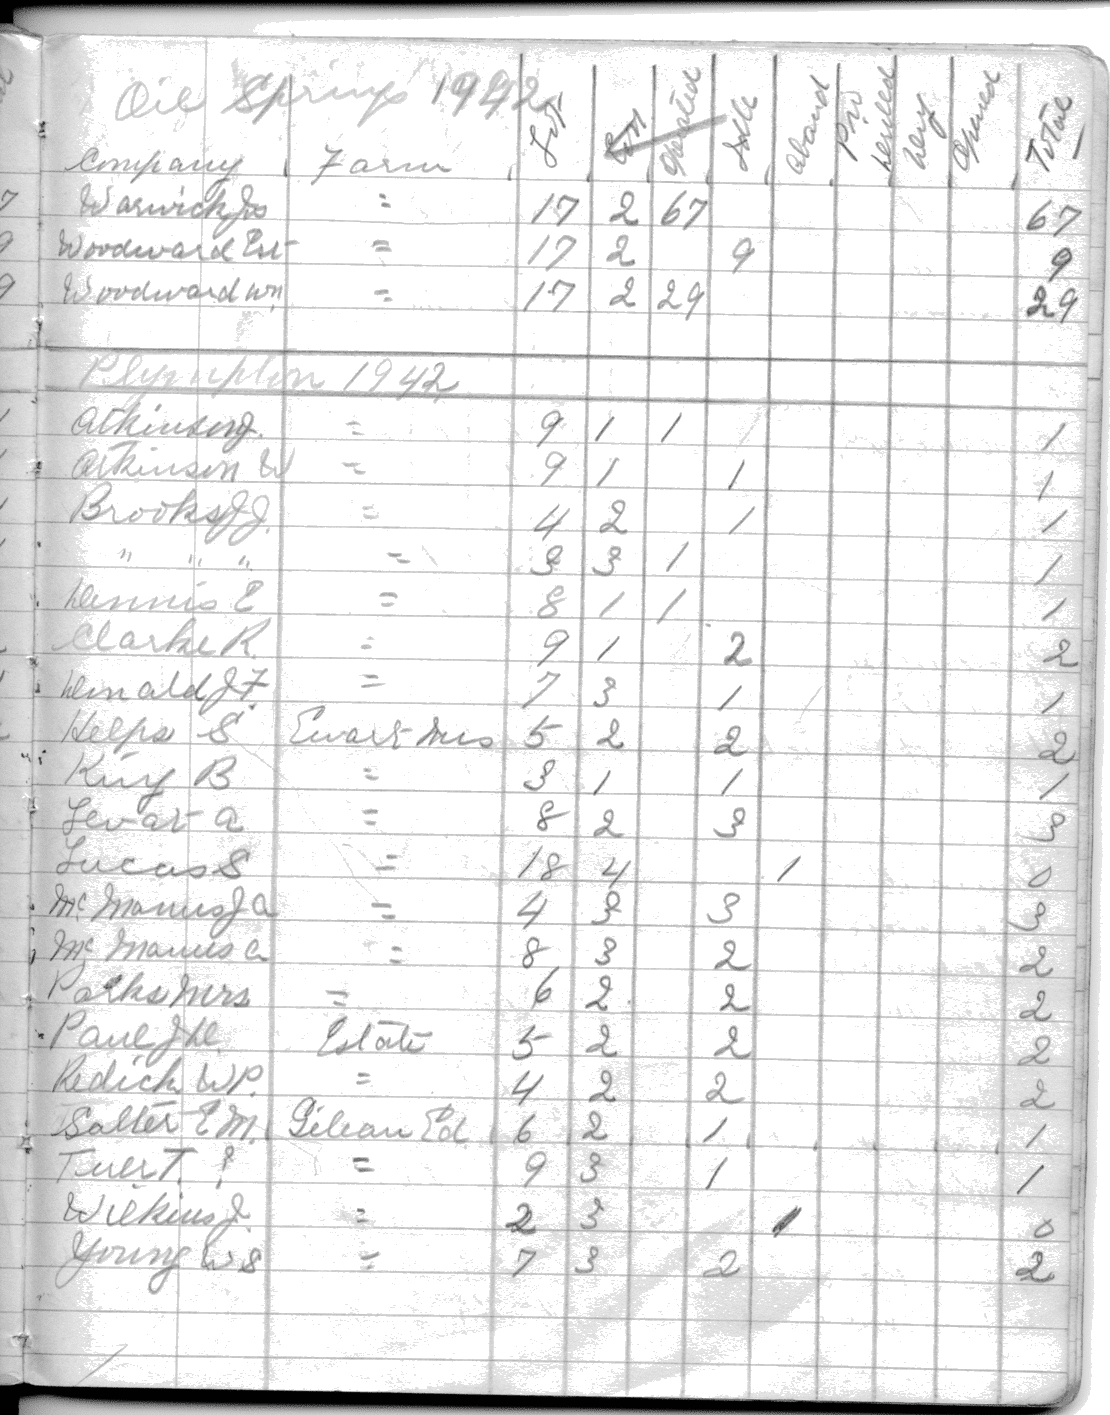 Oil Springs 1942
Company Farm Lot Con Operated Idle Aband Pw Drilled Deep Opened Total
Warwick Jas = 17 2 67 67
Woodward Est = 17 2 9 9
Woodward Wn = 17 2 29 29
Plympton 1942
Atkinson J. = 9 1 1 1
Atkinson W = 9 1 1 1
Brooks J J. = 4 2 1 1
" " " = 3 3 1 1
Dennis E = 8 1 1 1
Clarke R. = 9 1 2 2
Donald J F. = 7 3 1 1
Helps S Ewart Mrs 5 2 2 2
King B = 3 1 1 1
a = 8 2 3 3
Lucas S = 18 4 1 0
Mc Manus J a = 4 3 3 3
Mc Manus a = 8 3 2 2
Parks Mrs = 6 2 2 2
Estate 5 2 2 2
Redick W P. = 4 2 2 2
Salter E M. Ed 6 2 1 1
? = 9 3 1 1
Wilkins J. = 2 3 1 0
Young W S = 7 3 2 2